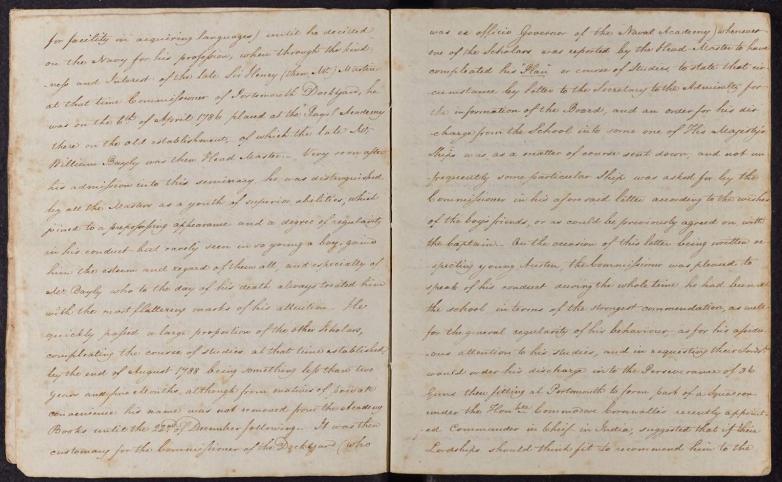 for facility in acquiring languages) until he decided
on the Navy for his profession, when through the kind
ness and Interest of the late Sir Henry (then Mr.) Martin
at that time Commissioner of Portsmouth Dockyard, he
was on the 6th of April 1786 placed at the Royal Academy
there on the old establishment, of which the late Mr.
William Bayly was then Head Master. Very soon after
his admission into this seminary he was distinguished
by all the Masters as a youth of superior abilities, which
joined to a prepossessing appearance and a degree of regularity
in his conduct but rarely seen in so young a boy, gained
him the esteem and regard of them all, and especially of
Mr. Bayly who to the day of his death always treated him
with the most flattering marks of his attention. He
quickly passed a large proportion of the other Scholars,
compleating the course of studies at that time established,
by the end of August 1788 being something less than two
years and five Months, although from motives of private
convenience his name was not removed from the Academy
Books until the 22nd of December following. It was then
customary for the Commissioner of the Dockyard (who
was ex officio Governor of the Naval Academy) whenever
one of the Scholars was reported by the Head Master to have
compleated his Plan or course of Studies, to state that cir
cumstance by letter to the Secretary to the Admiralty for
the information of the Board, and an order for his dis
charge from the School into some one of His Majesty's
Ships was as a matter of course sent down, and not un
frequently some particular Ship was asked for by the
Commissioner in his aforesaid letter according to the wishes
of the boy's friends, or as could be previously agreed on with
the Captain. On the occasion of this letter being written re
specting young Austen, the Commissioner was pleased to
speak of his conduct during the whole time he had been at
the school in terms of the strongest commendation, as well
for the general regularity of his behaviour as for his assidu
ous attention to his studies, and in requesting their Lordsps
would order his discharge into the Perseverance of 36
Guns then fitting at Portsmouth to form part of a Squadron
under the Honble Commodore Cornwallis recently appoint
ed Commander in Chief in India, suggested that if their
Lordships should think fit to recommend him to the